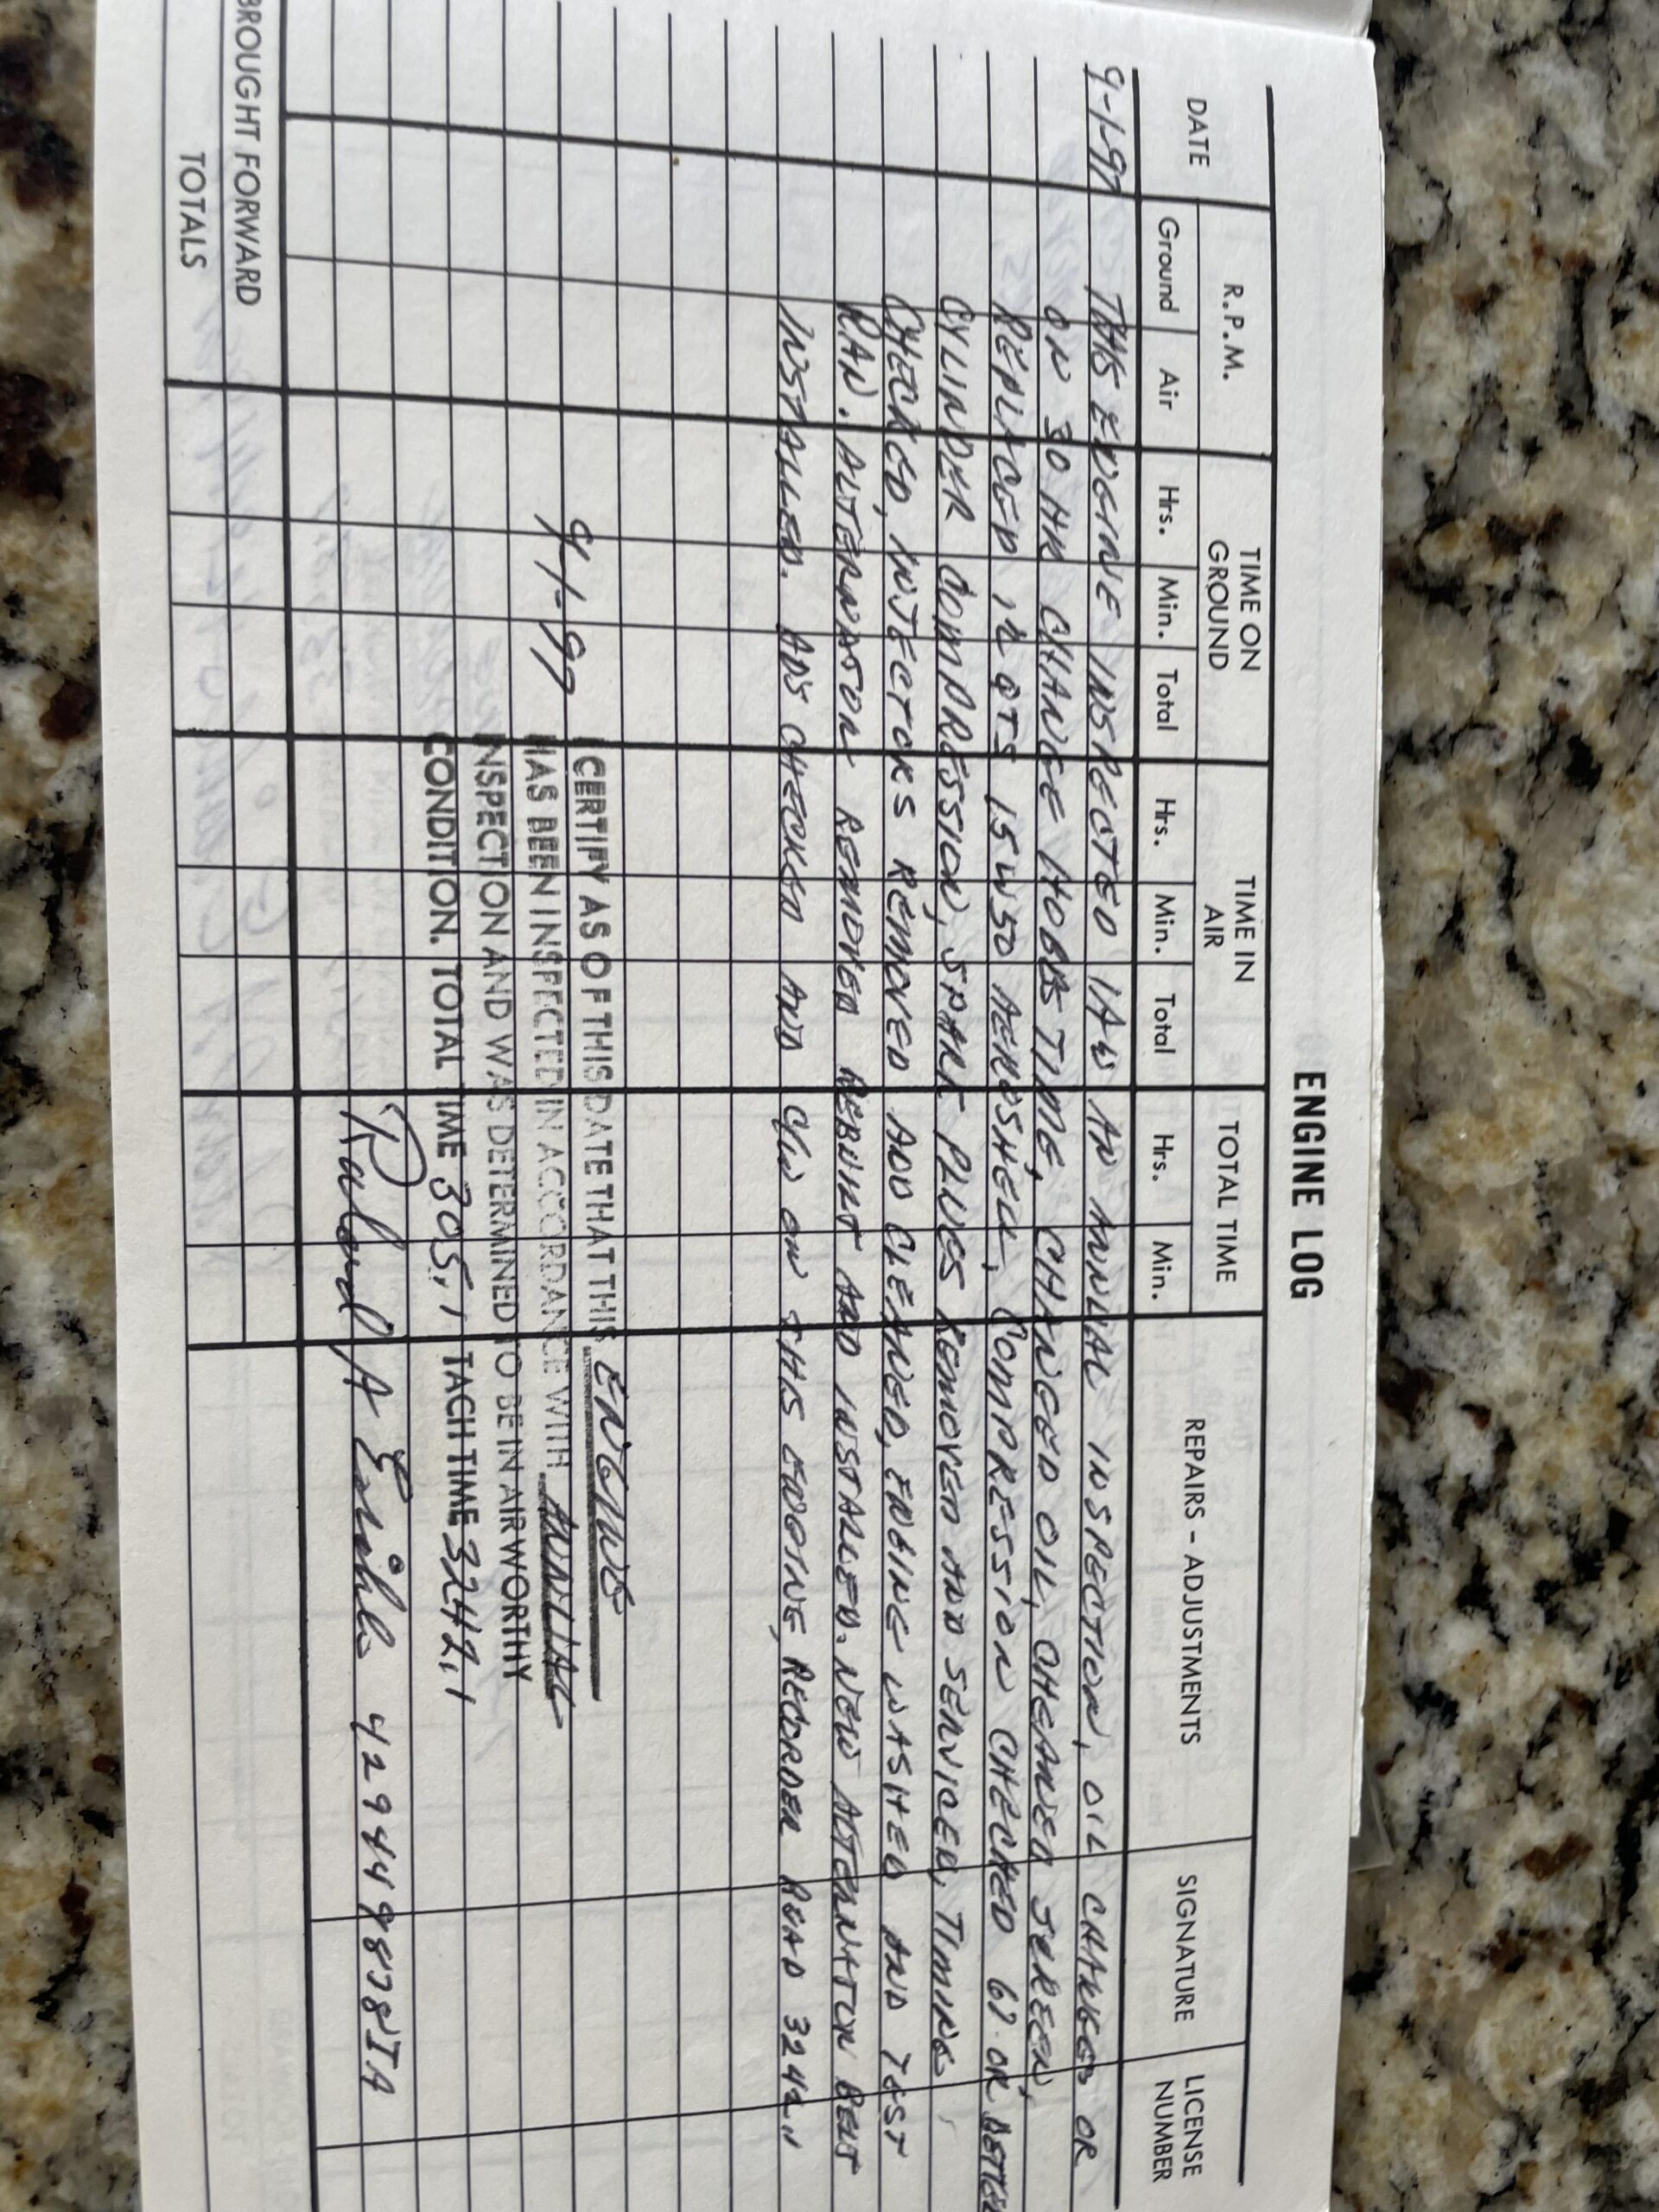 ENGINE LOG
DATE R.P.M. TIME ON GROUND TIME IN AIR TOTAL TIME REPAIRS - ADJUSTMENTS SIGNATURE LICENSE NUMBER
Ground Air Hrs. Min. Total Hrs. Min. Total Hrs. Min.
9-1-97 THIS ENGINE INSPECTED IAW AN ANNUAL INSPECTION, OIL CHANGED OR
ON 30 HR CHANGE HOBBS TIME, CHANGED OIL, CLEANED SCREEN,
REPLACED 12 QTS 15W50 AEROSHELL, COMPRESSION CHECKED 67 OR BETTER
CYLINDER COMPRESSION, SPARK PLUGS REMOVED AND SERVICED, TIMING
CHECKED, INJECTORS REMOVED AND CLEANED, ENGINE WASHED AND TEST
RAN. ALTERNATOR REMOVED REBUILT AND INSTALLED. NEW ALTERNATOR BELT
INSTALLED. ADS CHECKED AND C/W ON THIS ENGINE, RECORDER READ 3242.1
9-1-97 I CERTIFY AS OF THIS DATE THAT THIS ENGINE
HAS BEEN INSPECTED IN ACCORDANCE WITH ANNUAL
INSPECTION AND WAS DETERMINED TO BE IN AIRWORTHY
CONDITION. TOTAL TIME 305.1 TACH TIME 3242.1
A
BROUGHT FORWARD
TOTALS